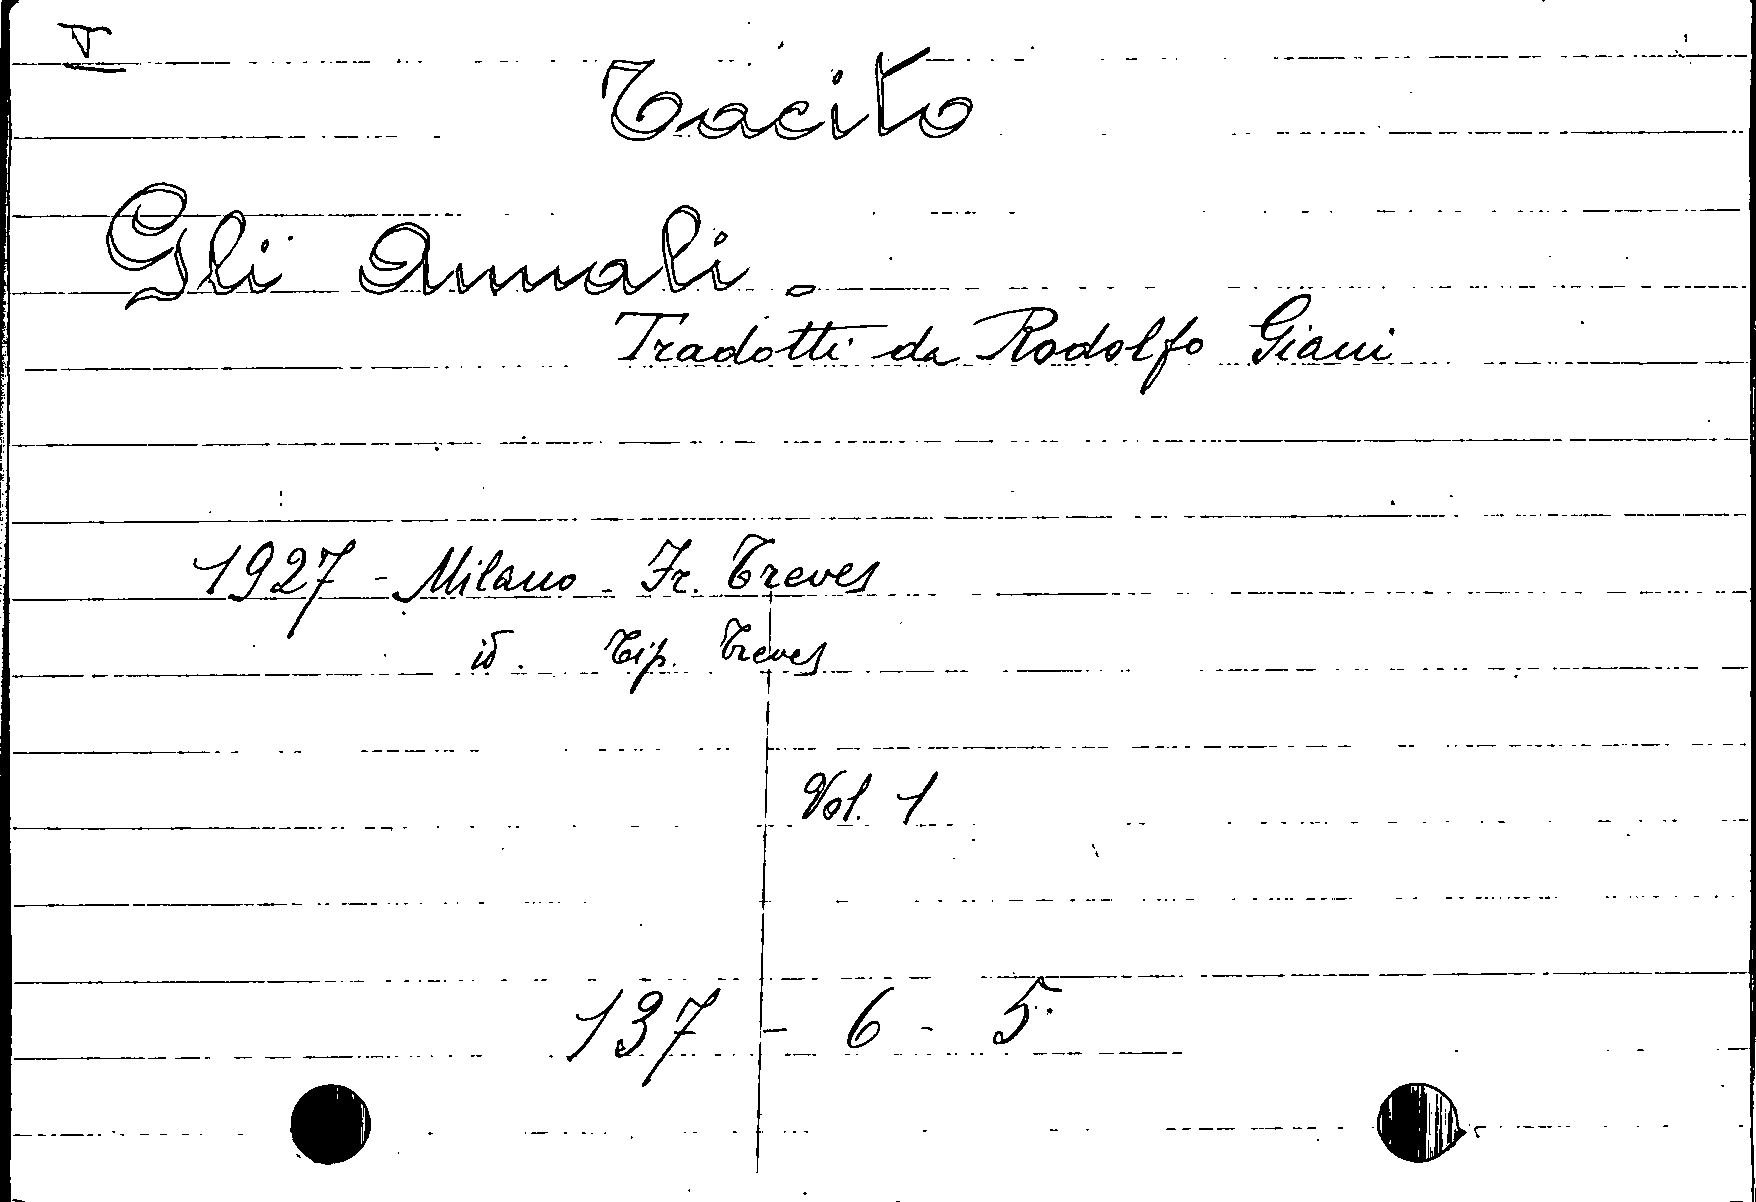 V
Tacito
Gli Annali.
Tradotti da Rodolfo Giani
1927 - Milano - Fr. Treves
id. Tip. Treves
Vol. 1
137 - 6 - 5.